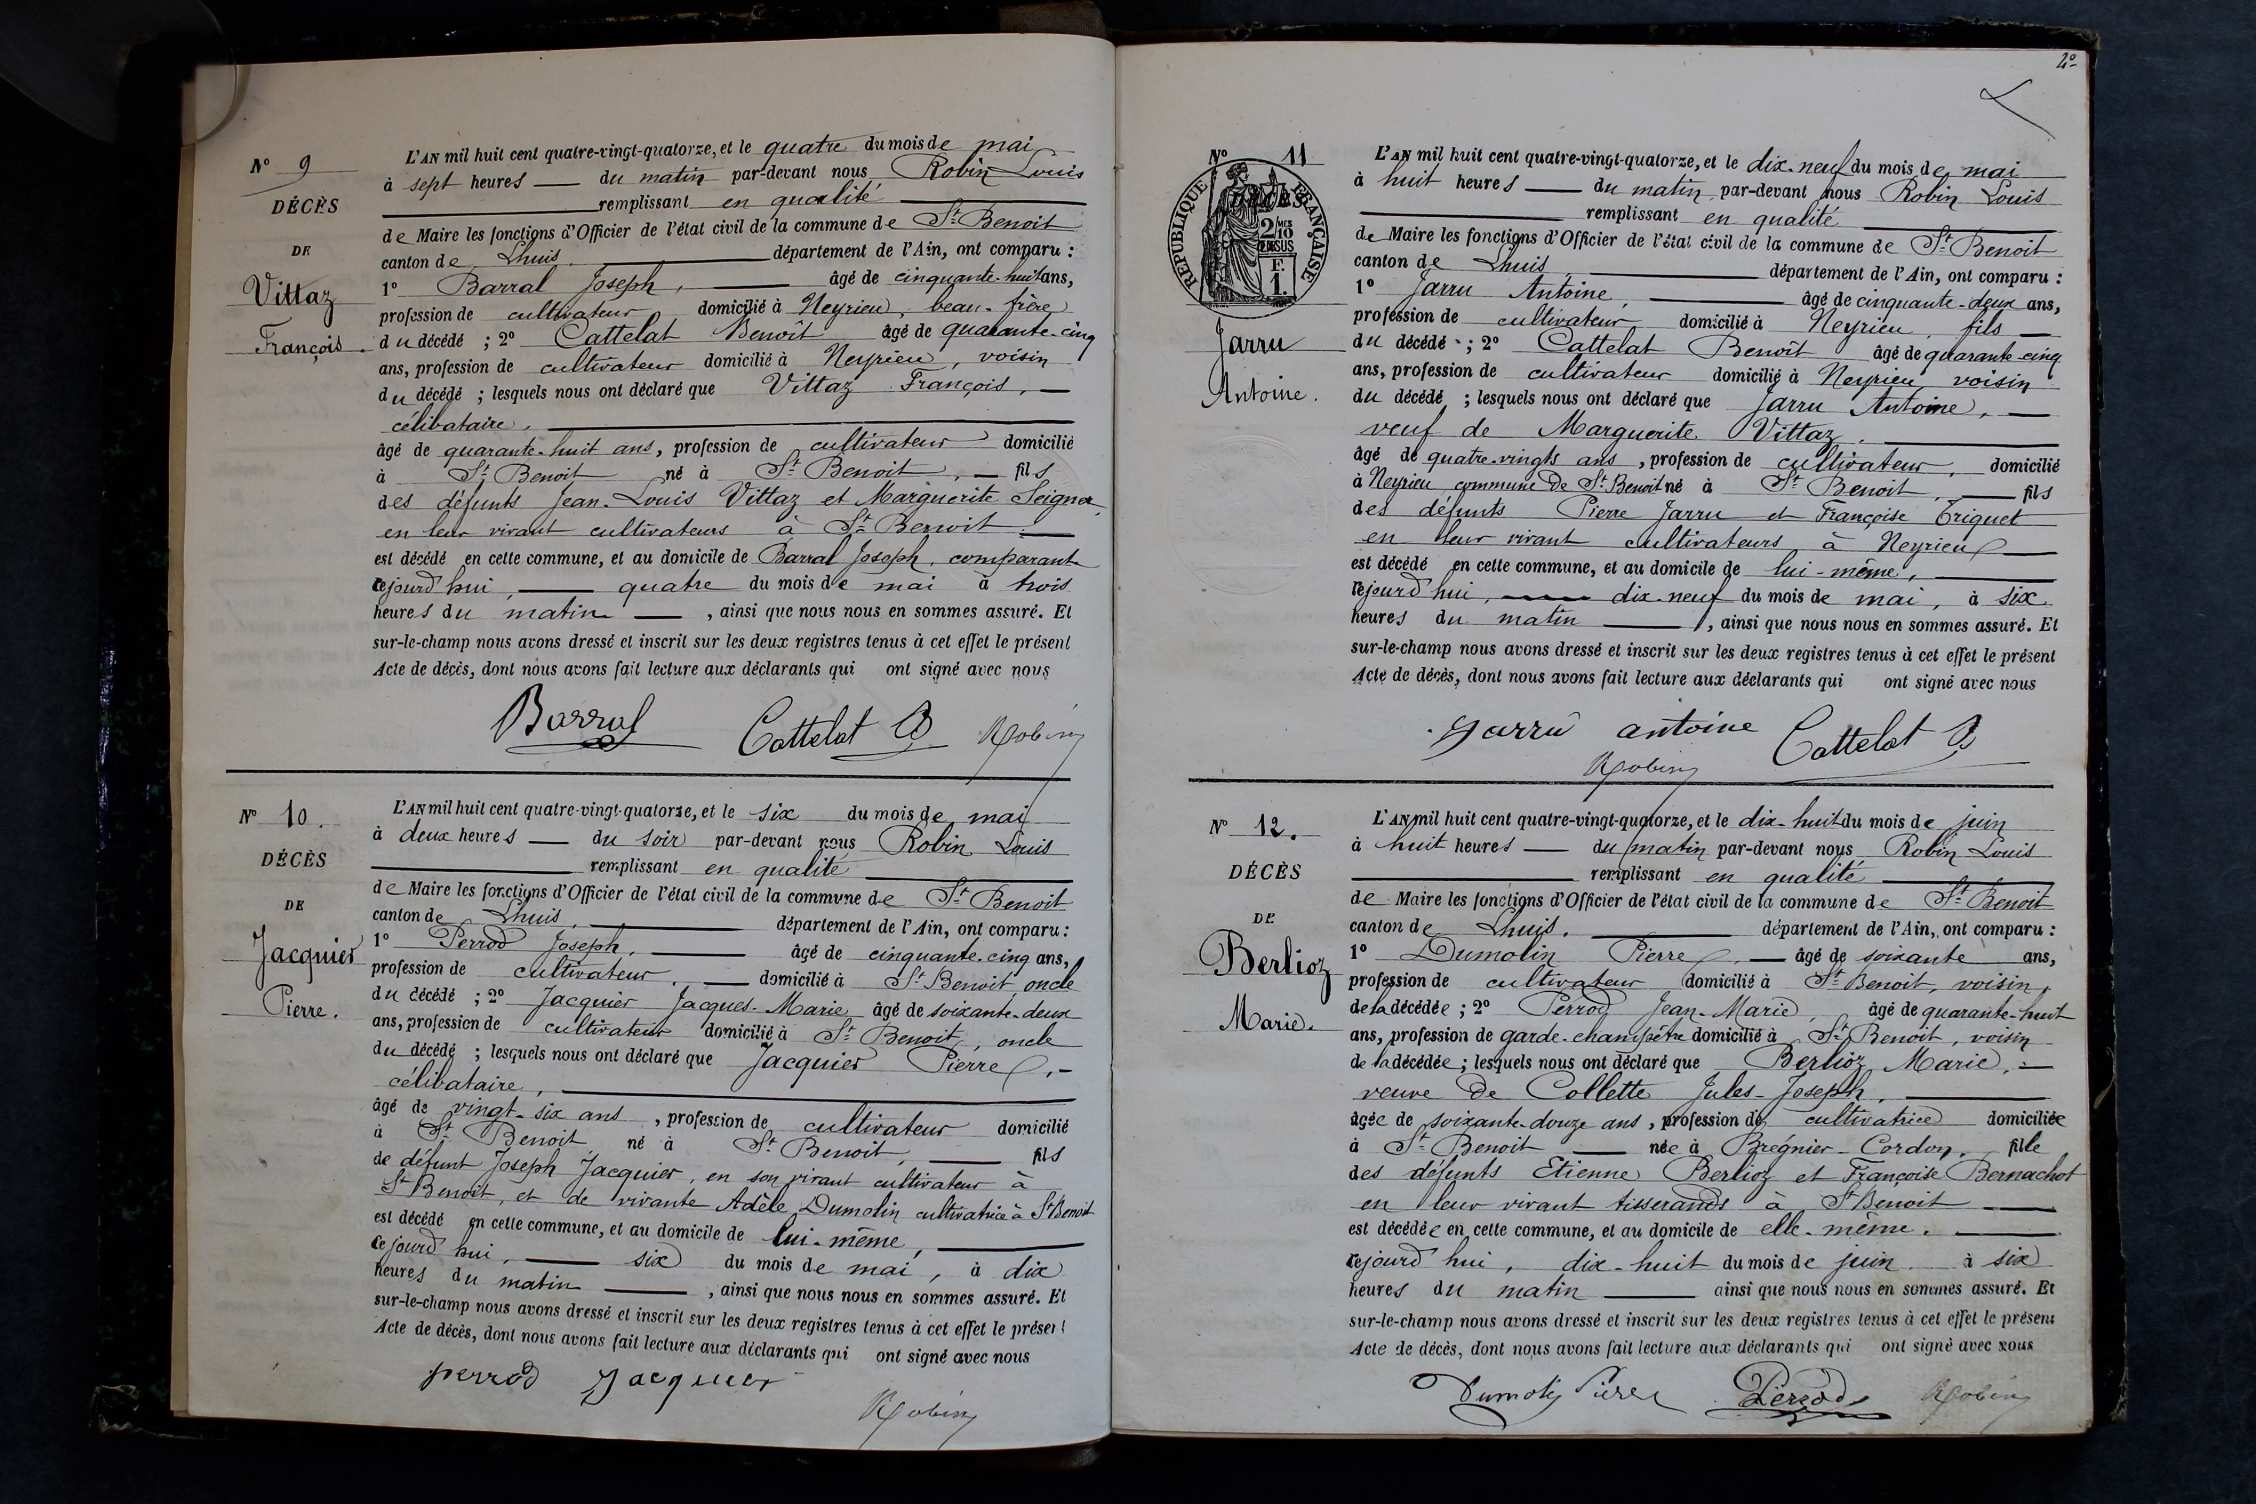 N° 9
DÉCÈS
DE
Vittaz
François.
L'AN mil huit cent quatre-vingt-quatorze, et le quatre du mois de mai
à sept heures — du matin par-devant nous Robin Louis
remplissant en qualité
de Maire les fonctions d'Officier de l'état civil de la commune de St Benoit
canton de Lhuis, département de l'Ain, ont comparu :
1° Barral Joseph, âgé de cinquante-huit ans,
profession de cultivateur domicilié à Neyrieu, beau-frère
du décédé ; 2° Cattelat Benoît âgé de quarante-cinq
ans, profession de cultivateur domicilié à Neyrieu, voisin
du décédé ; lesquels nous ont déclaré que Vittaz François, —
célibataire,
âgé de quarante-huit ans, profession de cultivateur domicilié
à St Benoit né à St Benoit, — fils
des défunts Jean-Louis Vittaz et Marguerite Seignor,
en leur vivant cultivateurs à St Benoit —
est décédé en cette commune, et au domicile de Barral Joseph, comparant
cejourd'hui, — quatre du mois de mai à trois
heures du matin — , ainsi que nous nous en sommes assuré. Et
sur-le-champ nous avons dressé et inscrit sur les deux registres tenus à cet effet le présent
Acte de décès, dont nous avons fait lecture aux déclarants qui ont signé avec nous
Barral Cattelat B Robin
N° 10.
DÉCÈS
DE
Jacquier
Pierre.
L'AN mil huit cent quatre-vingt-quatorze, et le six du mois de mai
à deux heures — du soir par-devant nous Robin Louis
remplissant en qualité
de Maire les fonctions d'Officier de l'état civil de la commune de St Benoit
canton de Lhuis, département de l'Ain, ont comparu :
1° Perrod Joseph, âgé de cinquante-cinq ans,
profession de cultivateur, — domicilié à St Benoit oncle
du décédé ; 2° Jacquier Jacques-Marie âgé de soixante-deux
ans, profession de cultivateur domicilié à St Benoit, oncle
du décédé ; lesquels nous ont déclaré que Jacquier Pierre, —
célibataire,
âgé de vingt-six ans, profession de cultivateur domicilié
à St Benoit né à St Benoit, — fils
de défunt Joseph Jacquier, en son vivant cultivateur à
St Benoit, et de vivante Adèle Dumolin cultivatrice à St Benoit
est décédé en cette commune, et au domicile de lui-même,
cejourd'hui, — six du mois de mai, à dix
heures du matin — , ainsi que nous nous en sommes assuré. Et
sur-le-champ nous avons dressé et inscrit sur les deux registres tenus à cet effet le présent
Acte de décès, dont nous avons fait lecture aux déclarants qui ont signé avec nous
perrod Jacquier
Robin
2°
N° 11
DÉCÈS
REPUBLIQUE FRANÇAISE
2/10 MES
EN SUS
F.
1.
Jarru
Antoine.
L'AN mil huit cent quatre-vingt-quatorze, et le dix-neuf du mois de mai
à huit heures — du matin par-devant nous Robin Louis
remplissant en qualité
de Maire les fonctions d'Officier de l'état civil de la commune de St Benoit
canton de Lhuis, département de l'Ain, ont comparu :
1° Jarru Antoine, âgé de cinquante-deux ans,
profession de cultivateur domicilié à Neyrieu fils —
du décédé ; 2° Cattelat Benoît âgé de quarante-cinq
ans, profession de cultivateur domicilié à Neyrieu, voisin
du décédé ; lesquels nous ont déclaré que Jarru Antoine, —
veuf de Marguerite Vittaz,
âgé de quatre-vingts ans, profession de cultivateur, domicilié
à Neyrieu commune de St Benoit né à St Benoit, — fils
des défunts Pierre Jarru et Françoise Triquet
en leur vivant cultivateurs à Neyrieu —
est décédé en cette commune, et au domicile de lui-même,
cejourd'hui, — dix-neuf du mois de mai, à six
heures du matin — , ainsi que nous nous en sommes assuré. Et
sur-le-champ nous avons dressé et inscrit sur les deux registres tenus à cet effet le présent
Acte de décès, dont nous avons fait lecture aux déclarants qui ont signé avec nous
Jarru antoine Cattelat B
Robin
N° 12.
DÉCÈS
DE
Berlioz
Marie.
L'AN mil huit cent quatre-vingt-quatorze, et le dix-huit du mois de juin
à huit heures — du matin par-devant nous Robin Louis
remplissant en qualité
de Maire les fonctions d'Officier de l'état civil de la commune de St Benoit
canton de Lhuis. département de l'Ain, ont comparu :
1° Dumolin Pierre, — âgé de soixante ans,
profession de cultivateur domicilié à St Benoit, voisin
de la décédée ; 2° Perrod Jean-Marie, âgé de quarante-huit
ans, profession de garde-champêtre domicilié à St Benoit, voisin
de la décédée ; lesquels nous ont déclaré que Berlioz Marie, —
veuve de Collette Jules-Joseph,
âgée de soixante-douze ans, profession de cultivatrice domiciliée
à St Benoit — née à Brégnier-Cordon, fille
des défunts Etienne Berlioz et Françoise Bernachot
en leur vivant tisserands à St Benoit —
est décédée en cette commune, et au domicile de elle-même.
cejourd'hui, dix-huit du mois de juin à six
heures du matin — ainsi que nous nous en sommes assuré. Et
sur-le-champ nous avons dressé et inscrit sur les deux registres tenus à cet effet le présent
Acte de décès, dont nous avons fait lecture aux déclarants qui ont signé avec nous
Dumolin Pierre Perrod Robin